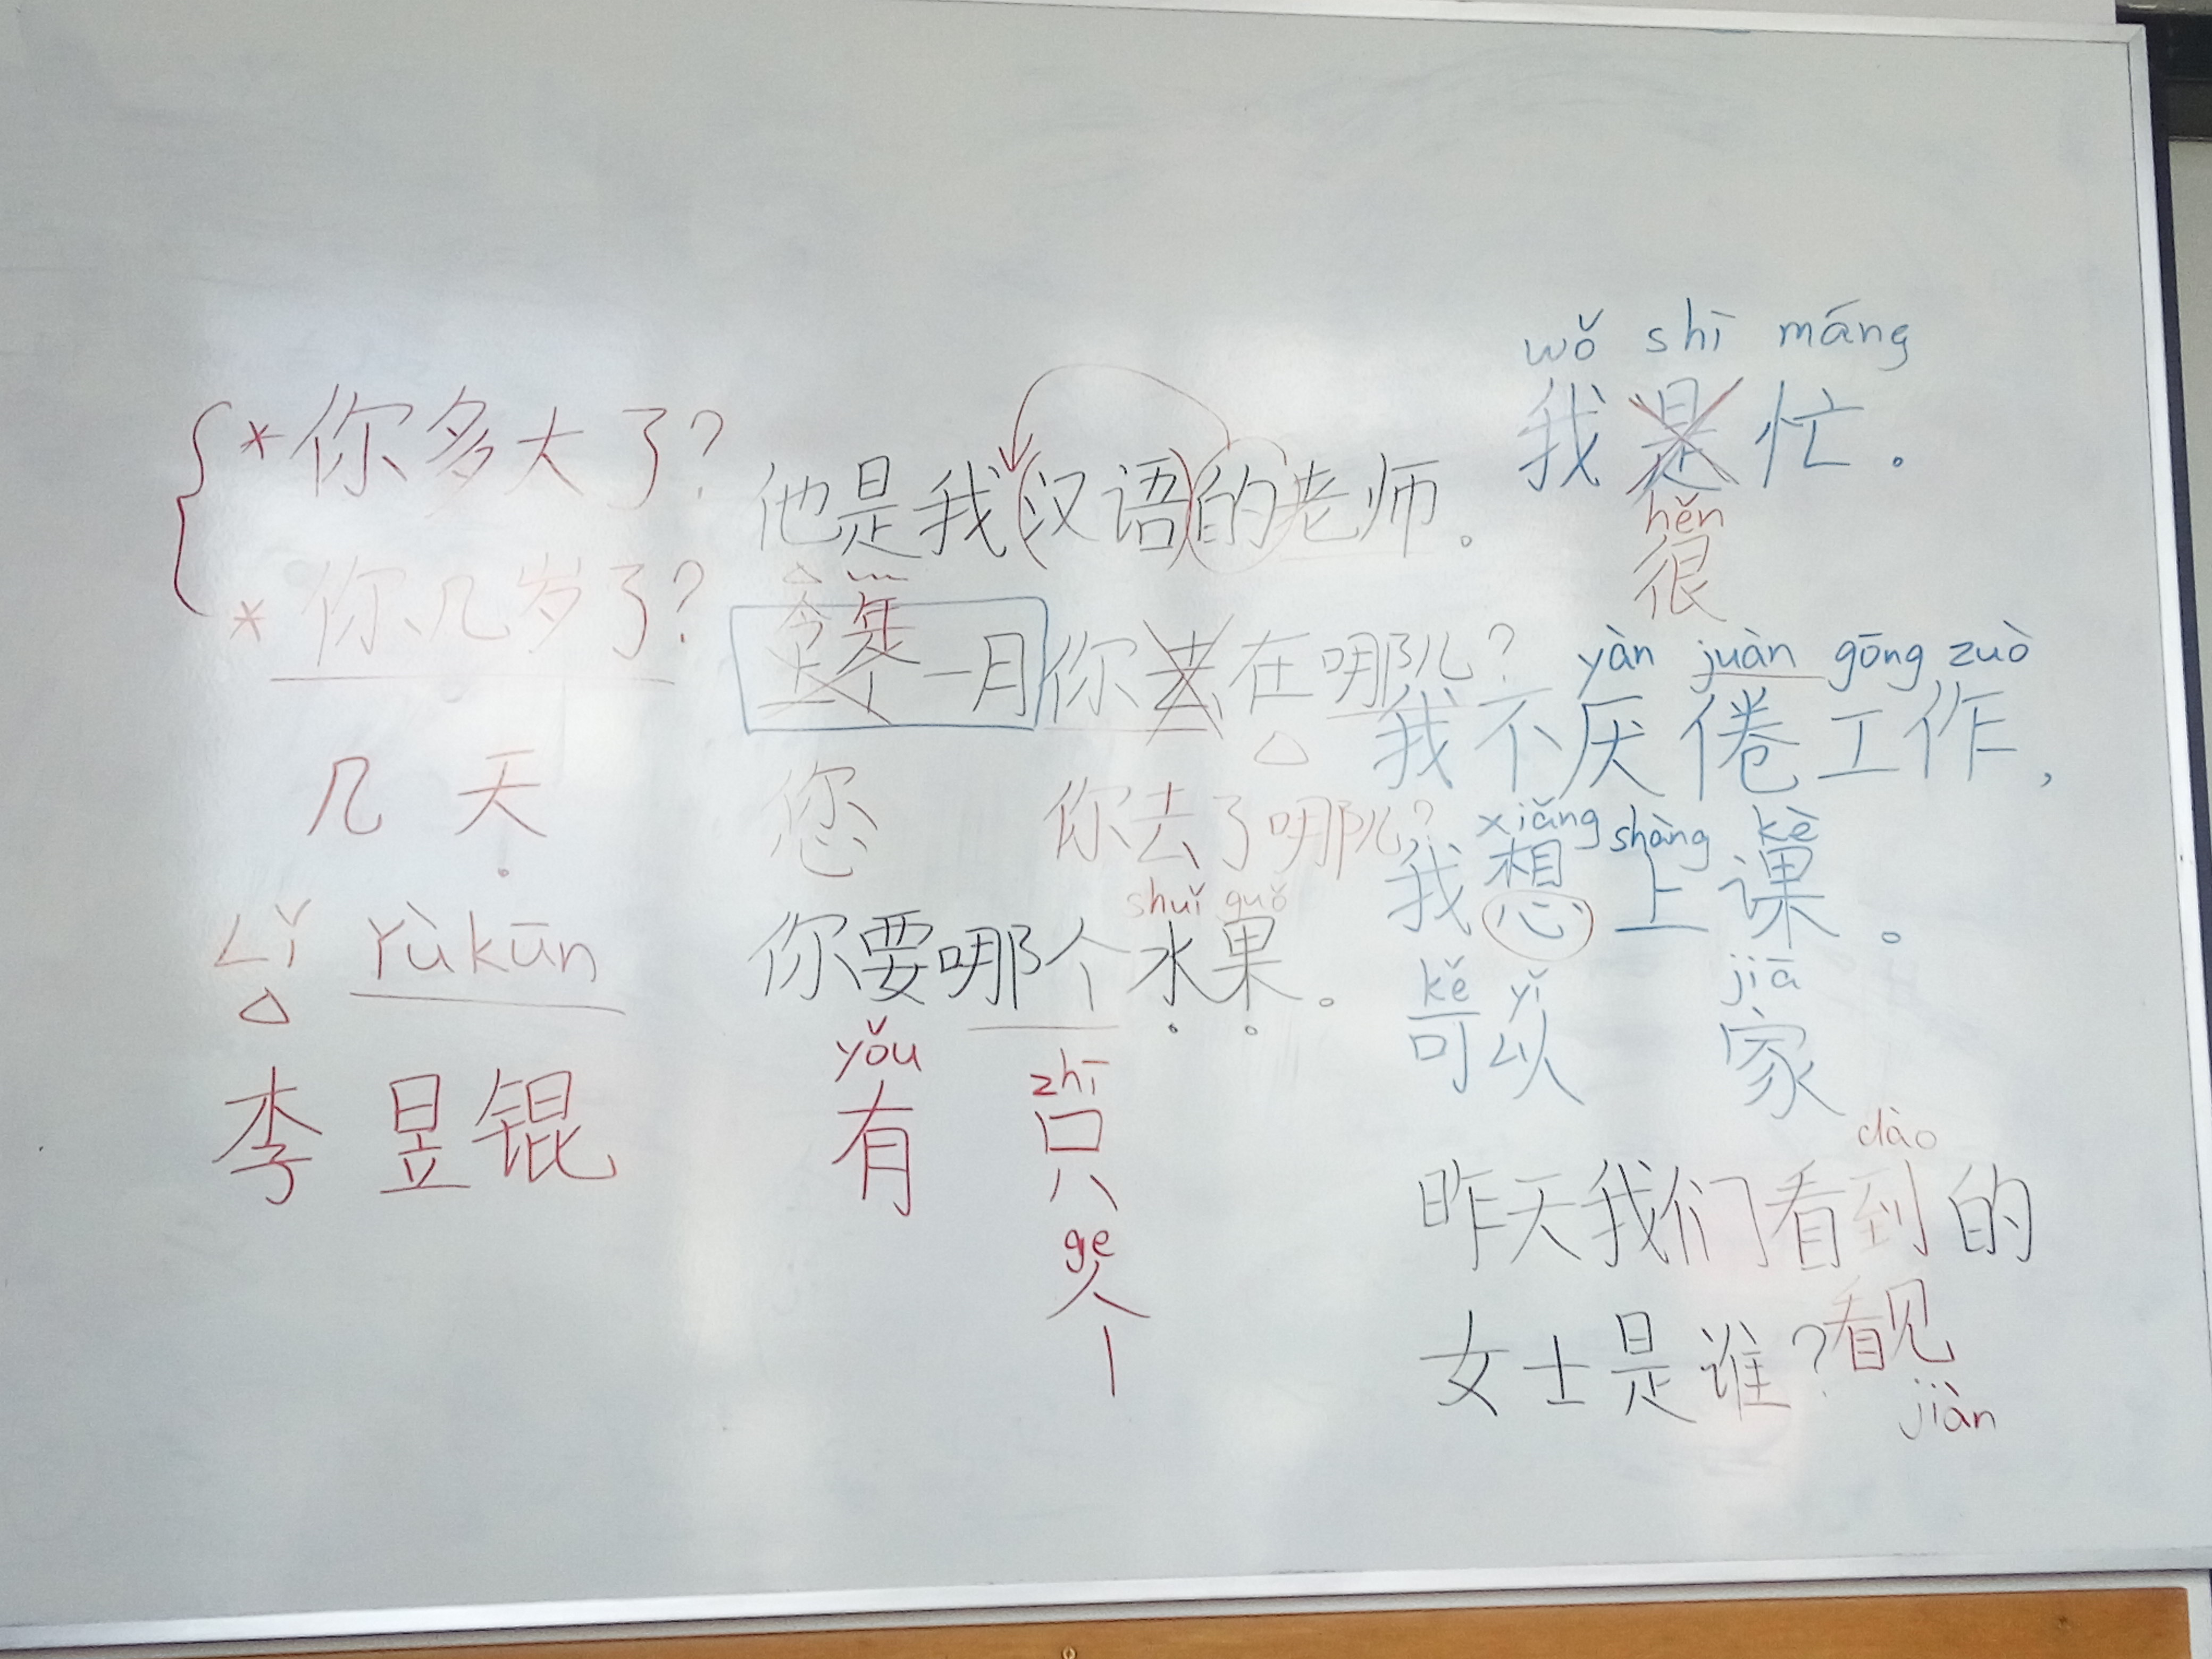 *你多大了?
*你几岁了?
几天
Lǐ Yùkūn
李昱锟
他是我(汉语)的老师。
今年
一月你去在哪儿?
您
你去了哪儿?
shuǐ guǒ
你要哪个水果。
yǒu
有
zhī
只
ge
个
wǒ shì máng
我是忙.
hěn
很
yàn juàn gōng zuò
我不厌倦工作,
xiǎng shàng kè
我想上课。
kě yǐ
可以
jiā
家
dào
昨天我们看到的
女士是谁?
看见
jiàn